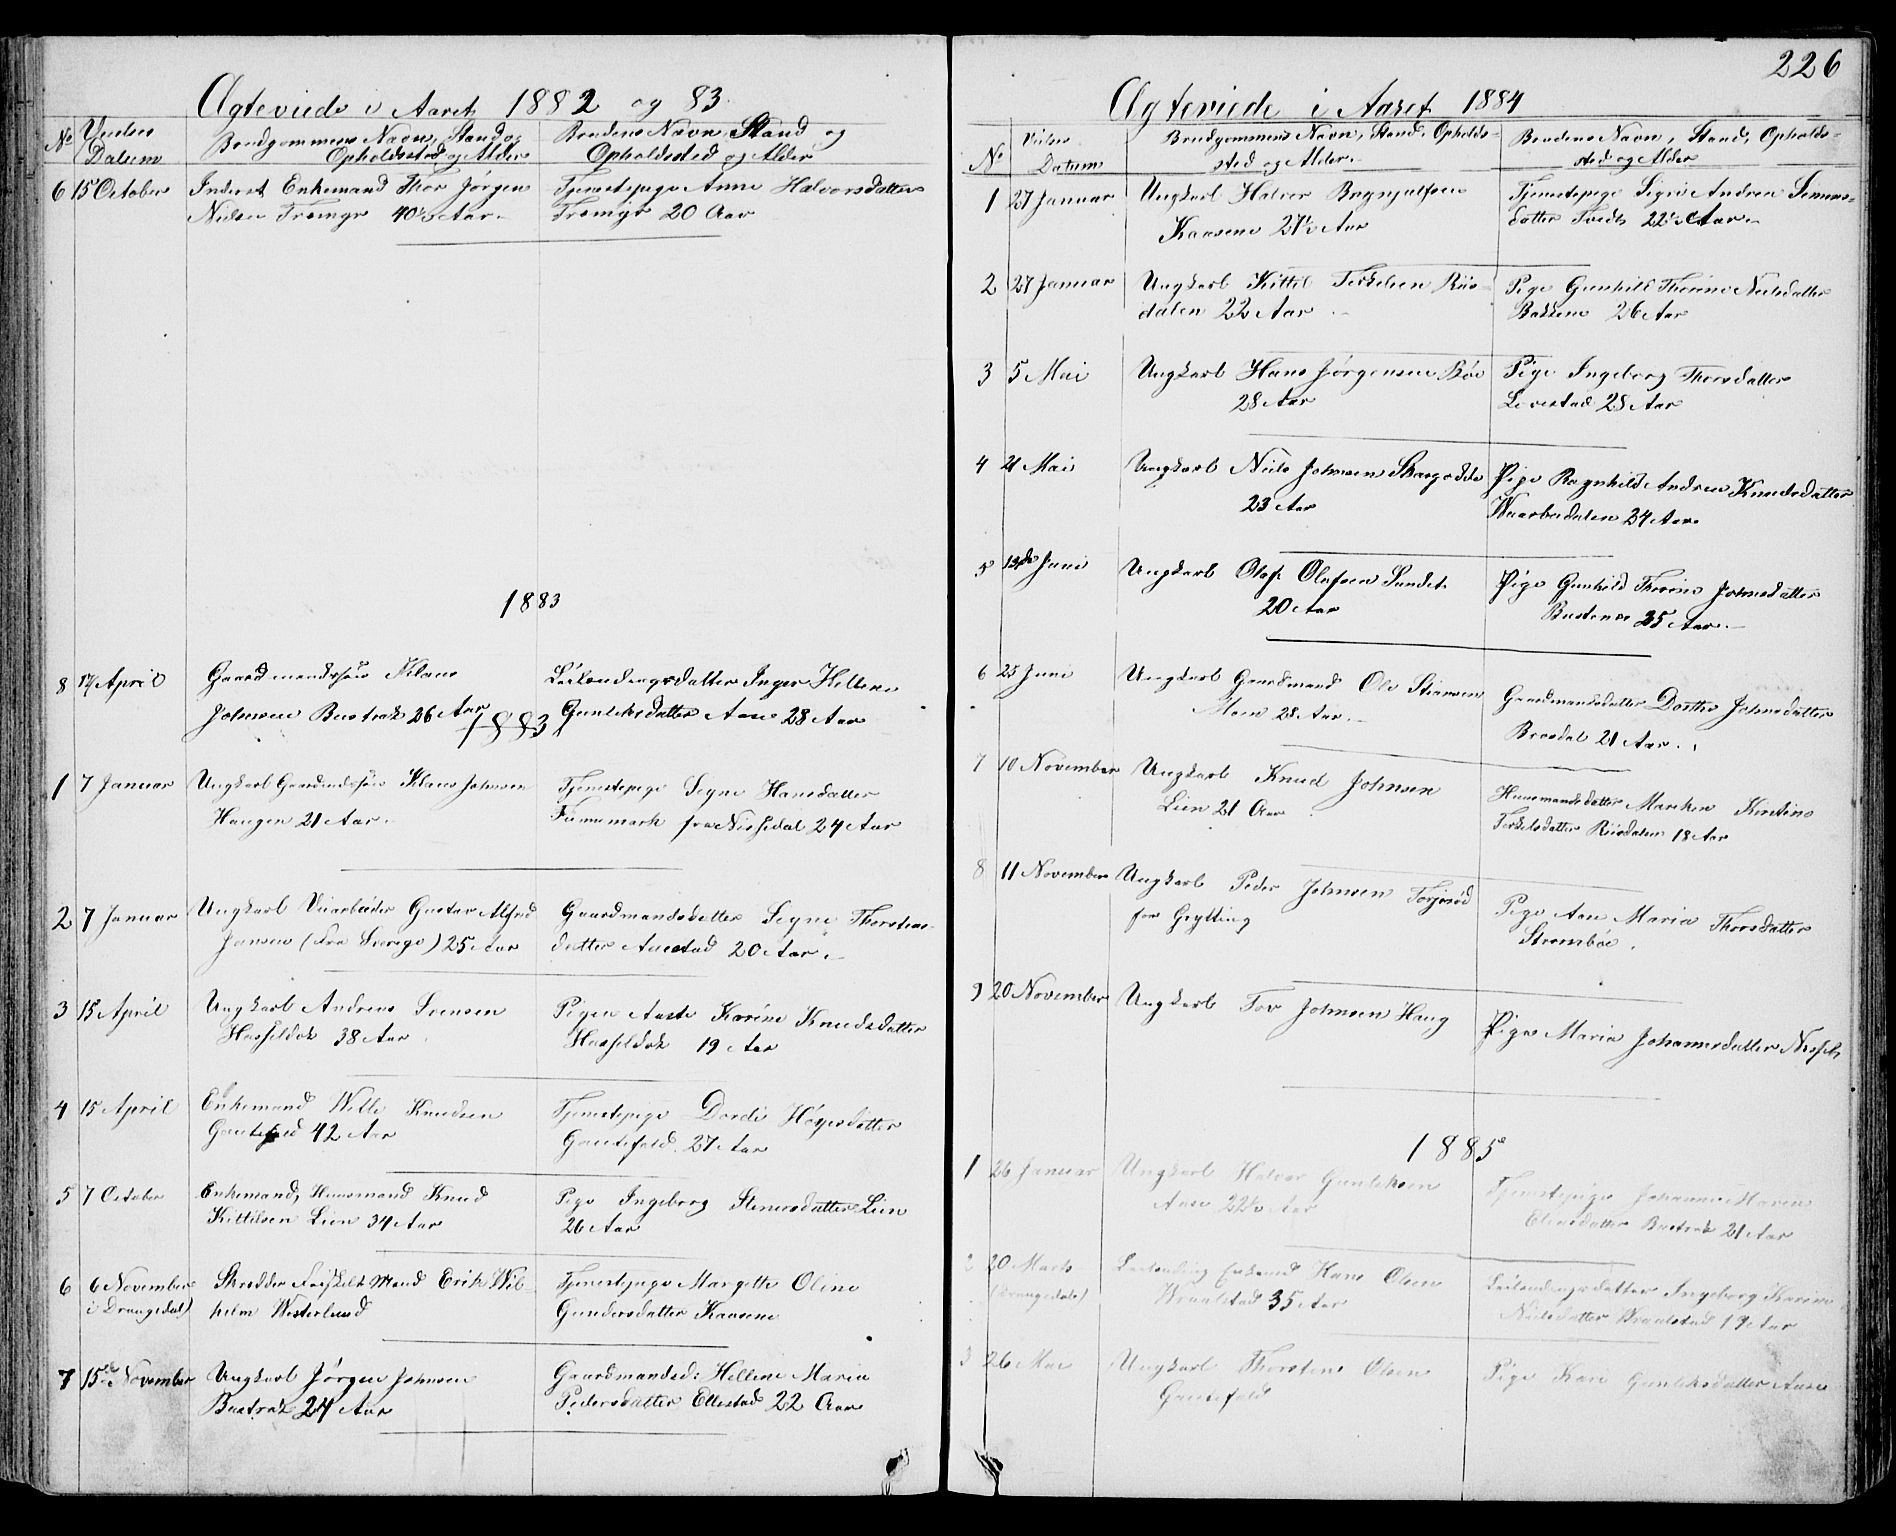 Ægteviede i Aaret 1882 og 83
No Vielses Datum
Brudgommens Navn, Stand og Opholdssted og Alder
Brudens Navn, Stand og Opholdssted og Alder
6 15 October Inderst Enkemand Thor Jørgen
Nielsen Tromyr 40½ Aar.
Tjenestepige Anne Halvorsdatter
Tromyr 20 Aar
1883
8 17 April Gaardmandssøn Klaus
Johnsen Bustrak 26 Aar
Leilændingsdatter Inger Hellene
Gunleksdatter Aase 28 Aar
1883
1 7 Januar Ungkarl Gaardmdssøn Klaus Johnsen
Haugen 21 Aar.
Tjenestepige Segne Hansdatter
Finnemark fra Nissedal 24 Aar
2 7 Januar Ungkarl Veiarbeider Gustav Alfred
Jansen (Fra Sverige) 25 Aar
Gaardmandsdatter Segne Thorstens-
datter Austad 20 Aar.
3 15 April Ungkarl Andreas Svensen
Hasseldok 38 Aar
Pigen Aaste Karine Knudsdatter
Hasseldok 19 Aar
4 15 April Enkemand Wetle Knudsen
Gautefald 42 Aar
Tjenestepige Dordi Høyesdatter
Gautefald 27 Aar
5 7 October Enkemand, Huusmand Knud
Kittilsen Lien 34 Aar
Pige Ingeborg Stenersdatter Lien
26 Aar
6 6 November i Drangedal)
Skrædder Friskilt Mand Erik Wil-
helm Westerlund
Tjenestepige Margethe Oline
Gundersdatter Kaasene
7 15de November Ungkarl Jørgen Johnsen
Bustrak 24 Aar
Gaardmandsd: Hellene Maria
Pedersdatter Ettestad 22 Aar
226
Ægteviede i Aaret 1884
No Vielses Datum
Brudgommens Navn, Stand, Opholds-
sted og Alder.
Brudens Navn, Stand, Opholds-
sted og Alder
1 27 Januar Ungkarl Halvor Brynjulfsen
Kaasene 21½ Aar
Tjenestepige Sigri Andrea Simons-
datter Tvedt 22½ Aar.
2 27 Januar Ungkarl Kittel Terkelsen Riis-
dalen 22 Aar
Pige Gunhild Thorine Nielsdatter
Bakkene 26 Aar
3 5 Mai Ungkarl Hans Jørgensen Bøe
28 Aar
Pige Ingeborg Thorsdatter
Levestad 25 Aar
4 21 Mai Ungkarl Niels Johnsen Skarsodde
23 Aar
Pige Ragnhild Andrea Knudsdatter
Waarbudalen 24 Aar
5 13de Juni Ungkarl Olaf Olafsen Sundet
20 Aar
Pige Gunhild Thorine Johnsdatter
Bustenes 25 Aar.
6 25 Juni Ungkarl Gaardmand Ole Stiansen
Moen 28 Aar.
Gaardmandsdatter Dorthe Johnsdatter
Brosdal 21 Aar.
7 10 November Ungkarl Knud Johnsen
Lien 21 Aar
Huusmandsdatter Marken Kirstine
Terkelsdatter Riisdalen 18 Aar
8 11 November Ungkarl Peder Johnsen Torjerød
for Grytting
Pige Ane Maria Thorsdatter
Strømbøe.
9 20 November Ungkarl Tov Johnsen Haug
Pige Maria Johannesdatter
1885
1 26 Januar Ungkarl Halvor Gunleksen
Aase 22½ Aar
Tjenestepige Johanne Maren
Eliasdatter Bustrak 21 Aar
2 20 Marts (Drangedal)
Leilænding Enkemd Hans Olsen
Wraalstad 35 Aar
Leilændingsdatter Ingeborg Karine
Nielsdatter Wraalstad 19 Aar
3 26 Mai Ungkarl Thorsten Olsen
Gautefald
Pige Kari Gunleksdatter Aase